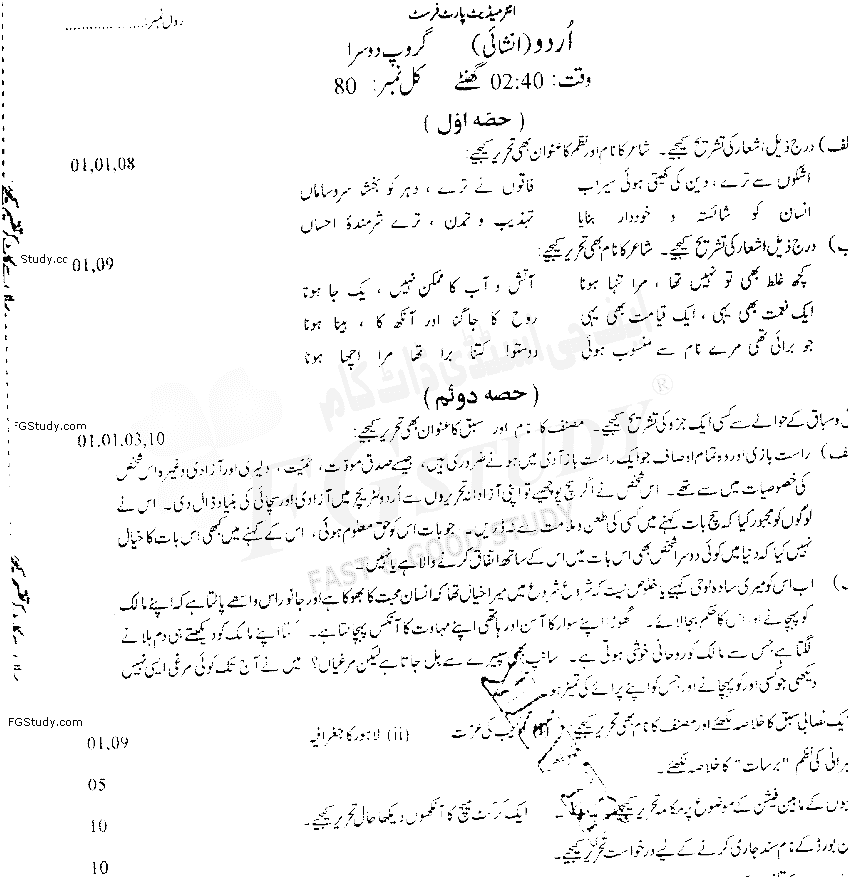 انٹرمیڈیٹ پارٹ فرسٹ
رول نمبر: ...................
اُردو (انشائی) گروپ دوسرا
وقت: 02:40 گھنٹے کل نمبر: 80
(حصّہ اوّل)
لف) درج ذیل اشعار کی تشریح کیجیے۔ شاعر کا نام اور نظم کا عنوان بھی تحریر کیجیے: 01,01,08
اشکوں سے ترے ، دین کی کھیتی ہوئی سیراب فاقوں نے ترے ، دہر کو بخشا سر و ساماں
انسان کو شائستہ و خوددار بنایا تہذیب و تمدن ، ترے شرمندۂ احساں
ب) درج ذیل اشعار کی تشریح کیجیے۔ شاعر کا نام بھی تحریر کیجیے: 01,09
Study.cc
کچھ غلط بھی تو نہیں تھا ، مرا تنہا ہونا آتش و آب کا ممکن نہیں ، یک جا ہونا
ایک نعمت بھی یہی ، ایک قیامت بھی یہی روح کا جاگنا اور آنکھ کا ، بینا ہونا
جو برائی تھی مرے نام سے منسوب ہوئی دوستو! کتنا برا تھا مرا اچھا ہونا
(حصہ دوئم)
و سباق کے حوالے سے کسی ایک جزو کی تشریح کیجیے۔ مصنف کا نام اور سبق کا عنوان بھی تحریر کیجیے: 01,01,03,10
FGStudy.com
لف) راست بازی اور وہ تمام اوصاف جو ایک راست باز آدمی میں ہونے ضروری ہیں، جیسے صدق مودّت، حمیّت، دلیری اور آزادی وغیرہ اس شخص
کی خصوصیات میں سے تھے۔ اس شخص نے اگر سچ پوچھیے تو اپنی آزادانہ تحریروں سے اُردو لٹریچر میں آزادی اور سچائی کی بنیاد ڈال دی۔ اس نے
لوگوں کو مجبور کیا کہ سچ بات کہنے میں کسی کی طعن و ملامت سے نہ ڈریں۔ جو بات اس کو حق معلوم ہوئی، اس کے کہنے میں کبھی اس بات کا خیال
نہیں کیا کہ دنیا میں کوئی دوسرا شخص بھی اس بات میں اس کے ساتھ اتفاق کرنے والا ہے یا نہیں۔
ب) اب اس کو میری سادہ لوحی کہیے یا خلوص نیت کہ شروع شروع میں میرا خیال تھا کہ انسان محبت کا بھوکا ہے اور جانور اس واسطے پالتا ہے کہ اپنے مالک
کو پہچانے اور اس کا حکم بجا لائے۔ گھوڑا اپنے سوار کا آسن اور ہاتھی اپنے مہاوت کا آنکس پہچانتا ہے۔ کتا اپنے مالک کو دیکھتے ہی دم ہلانے
لگتا ہے جس سے مالک کو روحانی خوشی ہوتی ہے۔ سانپ بھی سپیرے سے ہل جاتا ہے لیکن مرغیاں؟ میں نے آج تک کوئی مرغی ایسی نہیں
دیکھی جو کسی اور کو پہچانے اور جس کو اپنے پرائے کی تمیز ہو
یک نصابی سبق کا خلاصہ لکھئے اور مصنف کا نام بھی تحریر کیجیے: کی عزت (ii) لاہور کا جغرافیہ 01,09
FGStudy.com
یرانی کی نظم "برسات" کا خلاصہ لکھئے۔ 05
یوں کے مابین فیشن کے موضوع پر مکالمہ تحریر کیجیے ایک کرکٹ میچ کا آنکھوں دیکھا حال تحریر کیجیے۔ 10
ن بورڈ کے نام سند جاری کرنے کے لیے درخواست تحریر کیجیے۔ 10
ایف جی اسٹڈی ڈاٹ کام
FGSTUDY
FAST & GOOD STUDY
®